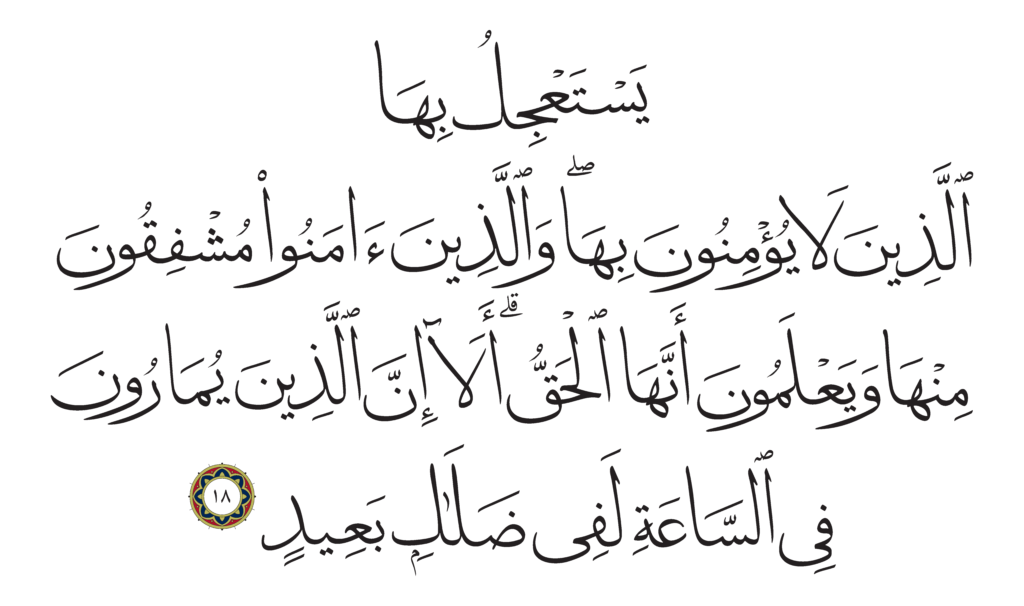 يَسْتَعْجِلُ بِهَا
ٱلَّذِينَ لَا يُؤْمِنُونَ بِهَاۖ وَٱلَّذِينَ ءَامَنُوا۟ مُشْفِقُونَ
مِنْهَا وَيَعْلَمُونَ أَنَّهَا ٱلْحَقُّۗ أَلَآ إِنَّ ٱلَّذِينَ يُمَارُونَ
فِى ٱلسَّاعَةِ لَفِى ضَلَـٰلٍۭ بَعِيدٍ ١٨